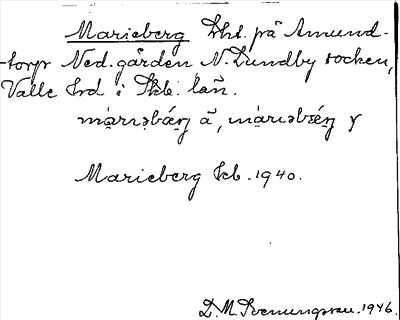 Marieberg Lht. på Amund-
-torp Ned.gården N. Lundby socken,
Valle hrd i Skb. län.
màrɩəbǽrj ä, màrɩəbǽrj y
Marieberg Kb. 1940.
D. M. Svenungsson. 1946.